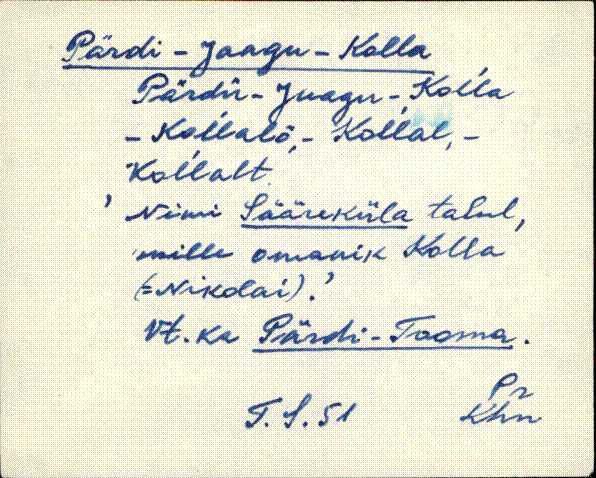 Pärdi-Jaagu-Kolla
Pärdi-Juagu-Kolla
-Kollalõ,-Kollal,-
Kollalt
'Nimi Sääreküla talul,
mille omanik Kolla
(=Nikolai).'
Vt. ka Pärdi-Tooma.
Pr
T.S.51 Khn